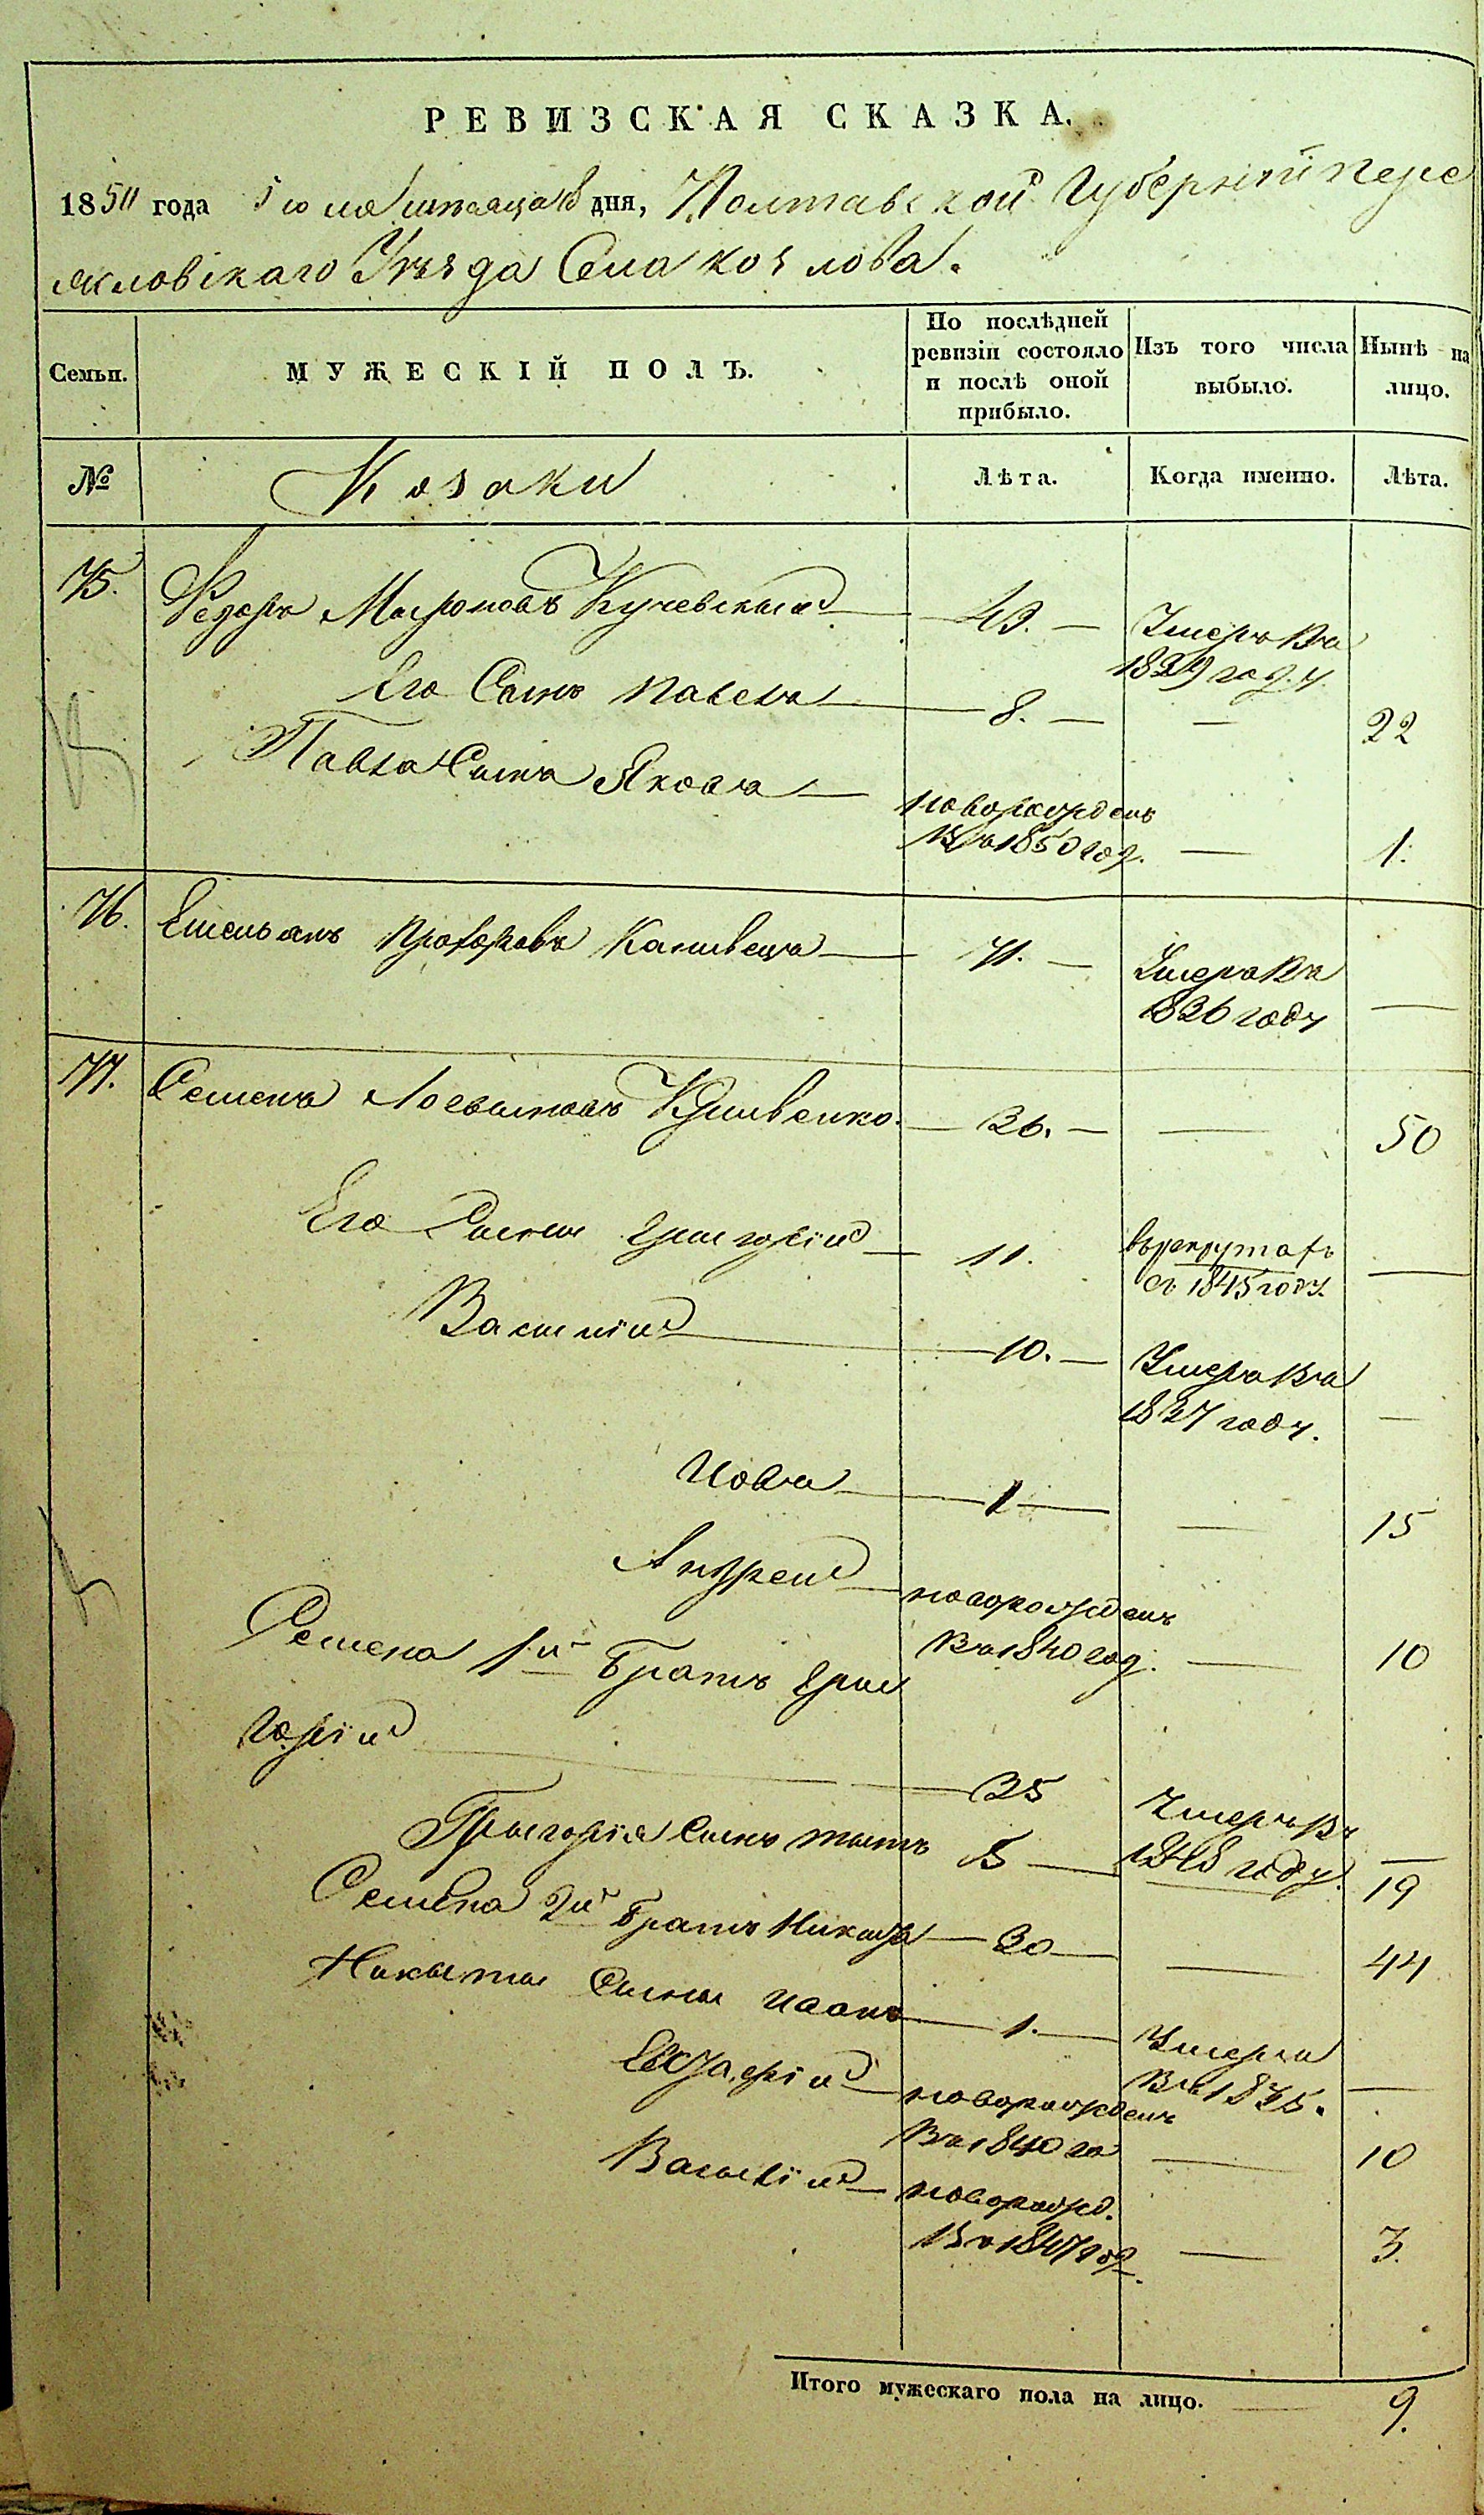 РЕВИЗСКАЯ СКАЗКА.
1850 года дня, Полтавской Губернии Пере
яславскаго Уѣзда Села Козлова.
Семьи.
МУЖЕСКІЙ ПОЛЪ.
По послѣдней
ревизіи состояло
и послѣ оной
прибыло.
Изъ того числа
выбыло.
Нынѣ на
лицо.
№ Козаки Лѣта. Когда именно. Лѣта.
75. Федоръ Мироновъ 43. Умеръ въ
1839 году.
Его Сынъ Павелъ 8. — — 22
Павла Сынъ Яковъ новорожденъ
въ 1850 год. — 1.
76. Емельянъ Прохоровъ Каневецъ 71. — Умеръ въ
1836 году —
77. Семенъ 36. — — 50
Его Сыны Григорій 11. въ рекрутахъ
съ 1845 году. —
Василій 10. — Умеръ въ
1837 году. —
Иовъ 1 — — 15
Андрей новорожденъ
въ 1840 год. — 10
Семена 1й Братъ Гри
горій 35 Умеръ въ
1848 году. —
Григорія Сынъ 5 — 19
Семена 2й Братъ Никита 30 — — 44
Никыты Сыны Иванъ 1. — Умеръ
въ 1835. —
новорожденъ
въ 1840 го — 10
Василій новорожд.
въ 1847 год. — 3.
Итого мужескаго пола на лицо. 9.